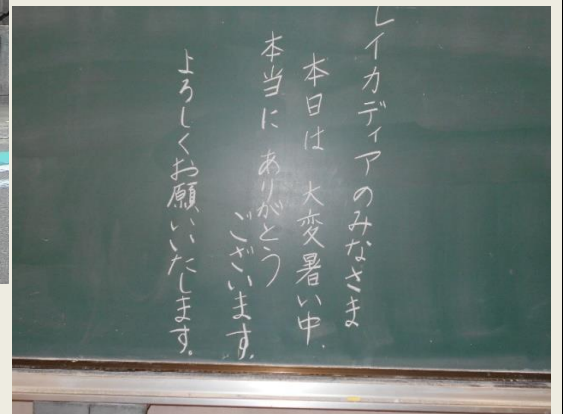 レイカディアのみなさま
本日は 大変暑い中、
本当に ありがとう
ございます。
よろしくお願いいたします。